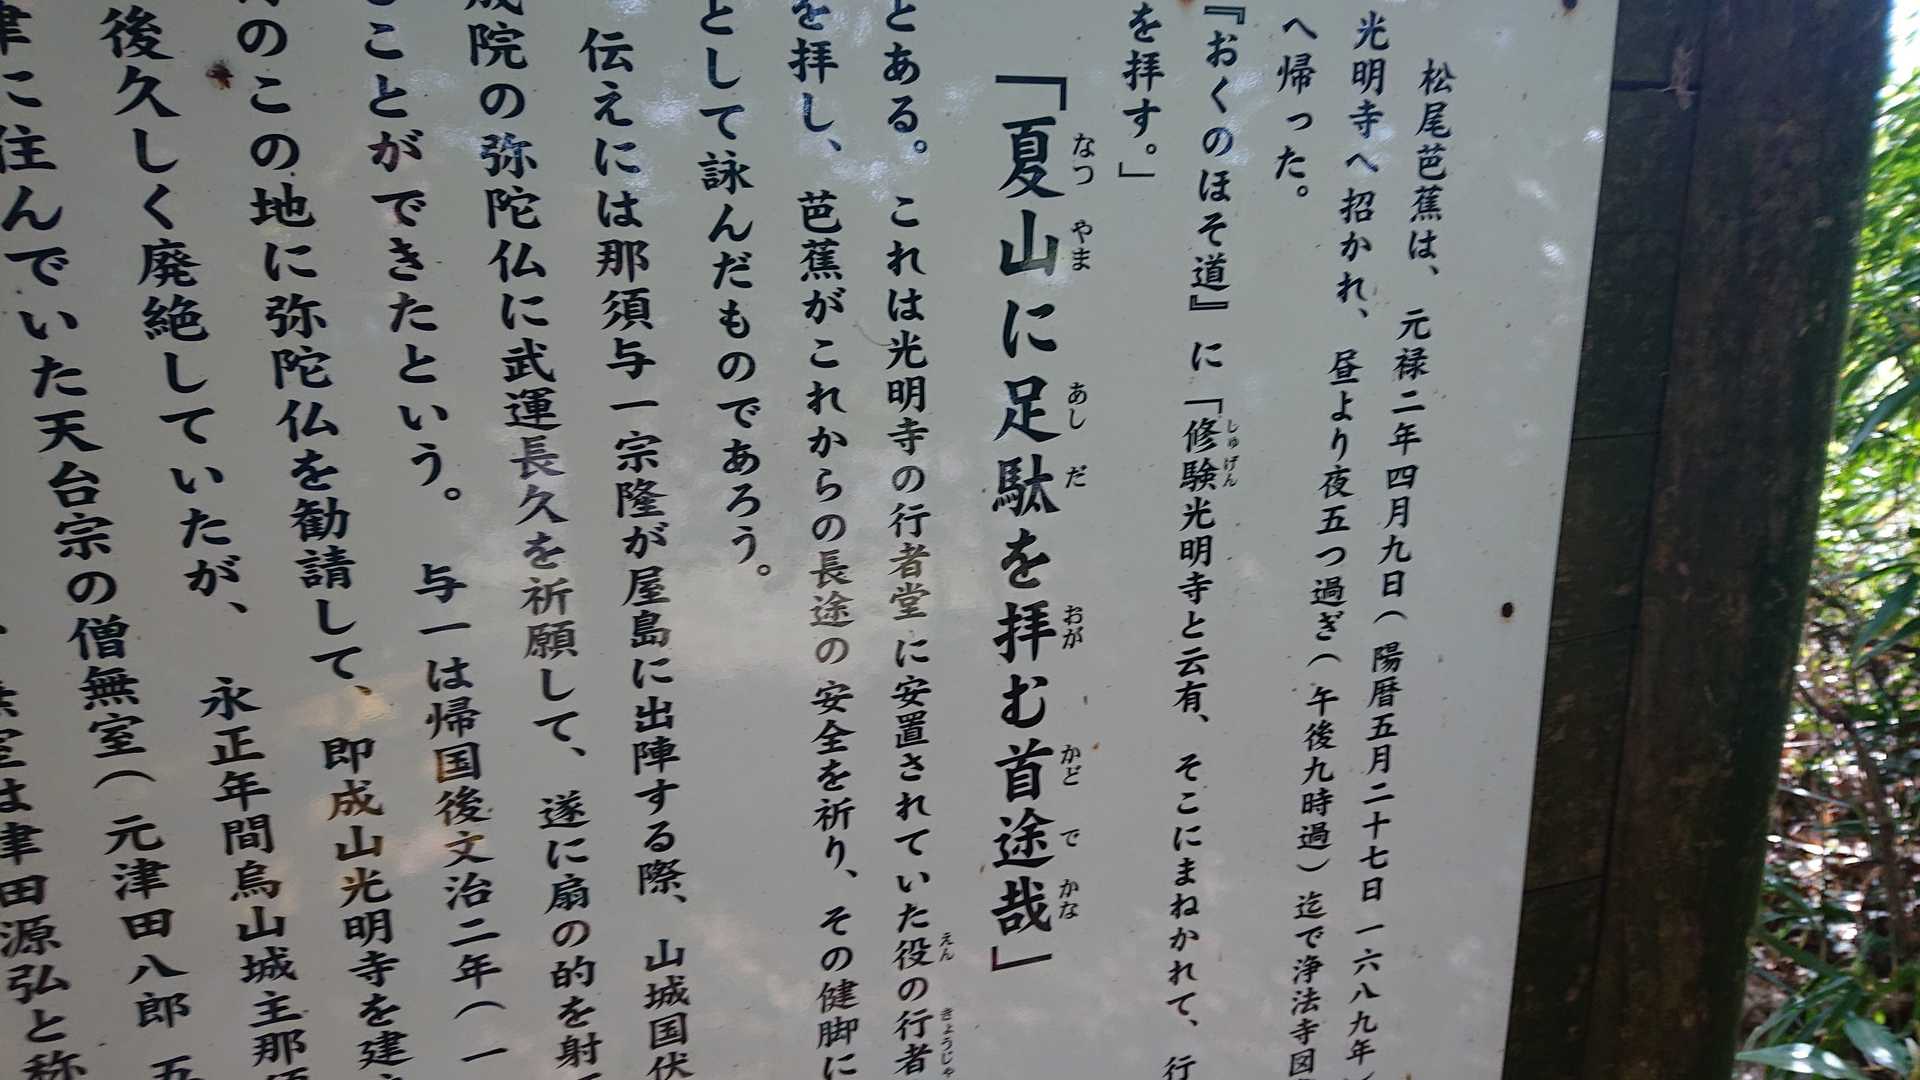 松尾芭蕉は、元禄二年四月九日(陽暦五月二十七日一六八九年)
光明寺へ招かれ、昼より夜五つ過ぎ(午後九時過)迄で浄法寺図
へ帰った。
『おくのほそ道』に「修験光明寺と云有、そこにまねかれて、行
を拝す。」
「夏山に足駄を拝む首途哉」
とある。これは光明寺の行者堂に安置されていた役の行者
を拝し、芭蕉がこれからの長途の安全を祈り、その健脚に
として詠んだものであろう。
伝えには那須与一宗隆が屋島に出陣する際、山城国伏
成院の弥陀仏に武運長久を祈願して、遂に扇の的を射
ことができたという。与一は帰国後文治二年(一
のこの地に弥陀仏を勧請して、即成山光明寺を建
後久しく廃絶していたが、永正年間烏山城主那須
津に住んでいた天台宗の僧無室(元津田八郎五
無室は津田源弘と称